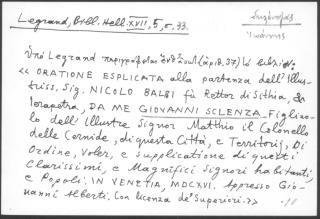 Legrand, Bibl. Hell. XVII, 5, σ. 33.
Ἰωάννης
Ὑπὸ Legrand περιγράφεται ἐνθ' ἀνωτ. (ἀριθ. 37) τὸ βιβλίον:
« ORATIONE ESPLICATA alla partenza dell' Illus-
triss. Sig. NICOLO BALBI fù Rettor di Sithia, &
Ierapetra, DA ME GIOVANNI SCLENZA. Figliuo-
lo dell' Illustre Signor Matthio il Colonello
delle Cernide, di questa Città, e Territorij. Di
Ordine, Voler, e supplicatione di questi
Clarissimi, e Magnifici Signori habitanti,
e Popoli. IN VENETIA, MDCXVI. Appresso Gio-
vanni Alberti. Con licenza de' Superiori.»